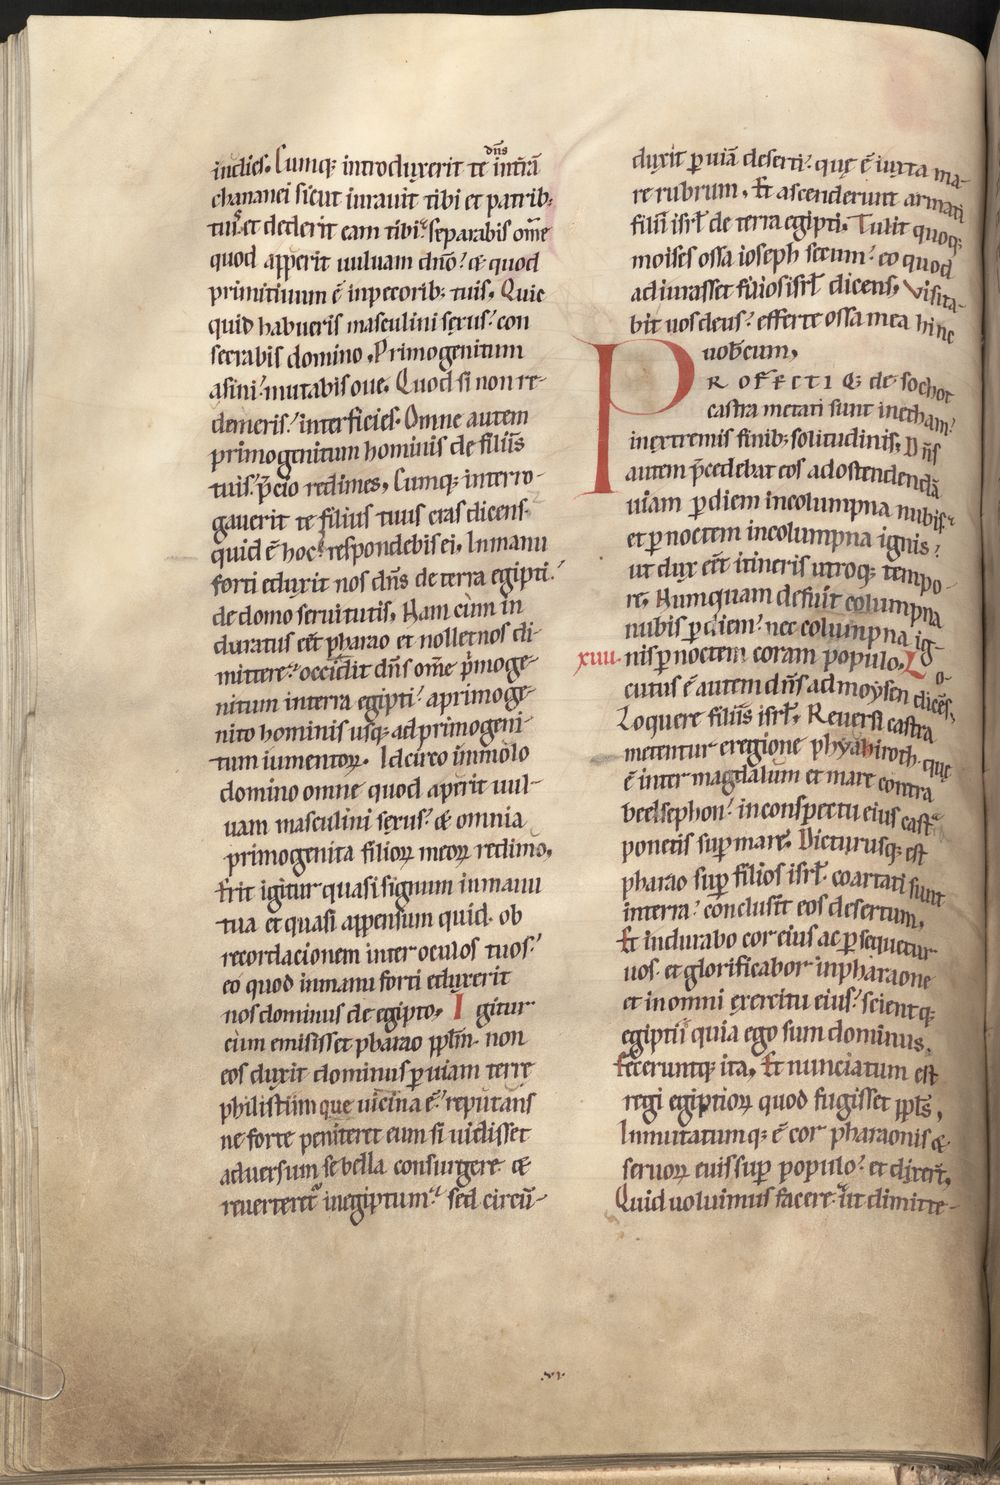 in dies. Cumq; introduxerit te dn̄s int̄rā
chananei sicut iurauit tibi et patrib;
tuis. et dederit eam tibi: separabis om̄e
quod apperit uuluam dn̄o: & quod
primitiuum ē in pecorib; tuis. Quic
quid habueris masculini sexus: con
secrabis domino. Primogenitum
asini: mutabis oue. Quod si non re-
demeris: interficies. Omne autem
primogenitum hominis de filiis
tuis: p̄cio redimes. Cumq; interro-
gauerit te filius tuus cras dicens.
quid ē hoc: respondebis ei. In manu
forti eduxit nos dn̄s de terra egipti:
de domo seruitutis. Nam cum in
duratus eēt pharao et nollet nos di-
mittere: occidit dn̄s om̄e p̄moge-
nitum in terra egipti: a primoge-
nito hominis usq; ad primogeni-
tum iumentoꝝ. Idcirco immolo
domino omne quod aperit uul-
uam masculini sexus: & omnia
primogenita filioꝝ meoꝝ redimo.
Erit igitur quasi signum in manu
tua et quasi appensum quid. ob
recordacionem inter oculos tuos:
eo quod in manu forti eduxerit
nos dominus de egipto. Igitur
cum emisisset pharao ppl̄m. non
eos duxit dominus ꝑ uiam terrę
philistiim que uicina ē: reputans
ne forte peniteret eum si uidisset
aduersum se bella consurgere &
reuerteret᷑ in egiptum: sed circū-
duxit ꝑ uiā deserti: quę ē iuxta ma-
re rubrum. Et ascenderunt armati
filii isrl̄ de terra egipti. Tulit quoq;
moises ossa ioseph secum: eo quod
adiurasset filios isrl̄ dicens. Visita-
bit uos deus: efferte ossa mea hinc
uob̄cum.
PROFECTIQ; de sochot
castra metati sunt in etham:
in extremis finib; solitudinis. Dn̄s
autem p̄cedebat eos ad ostendendā
uiam ꝑ diem in columpna nubis:
et ꝑ noctem in columpna ignis:
ut dux eēt itineris utroq; tempo-
re. Numquam defuit columpna
nubis ꝑ diem: nec columpna ig-
xiiii. nis ꝑ noctem coram populo. Lo-
cutus ē autem dn̄s ad moysen dicēs.
Loquere filiis isrl̄. Reuersi castra
metentur e regione phyahiroth. quę
ē inter magdalum et mare contra
beelsephon: in conspectu eius casta
ponetis suꝑ mare. Dicturusq; est
pharao suꝑ filios isrl̄. coartati sunt
in terra: conclusit eos desertum.
Et indurabo cor eius ac ꝑsequetur
uos. et glorificabor in pharaone
et in omni exercitu eius: scientq;
egiptii quia ego sum dominus.
feceruntq; ita. Et nunciatum est
regi egiptioꝝ quod fugisset ppl̄s.
Inmutatumq; ē cor pharaonis &
seruoꝝ euis suꝑ populo: et dixer̄t.
Quid uoluimus facere ut dimitte-
xv